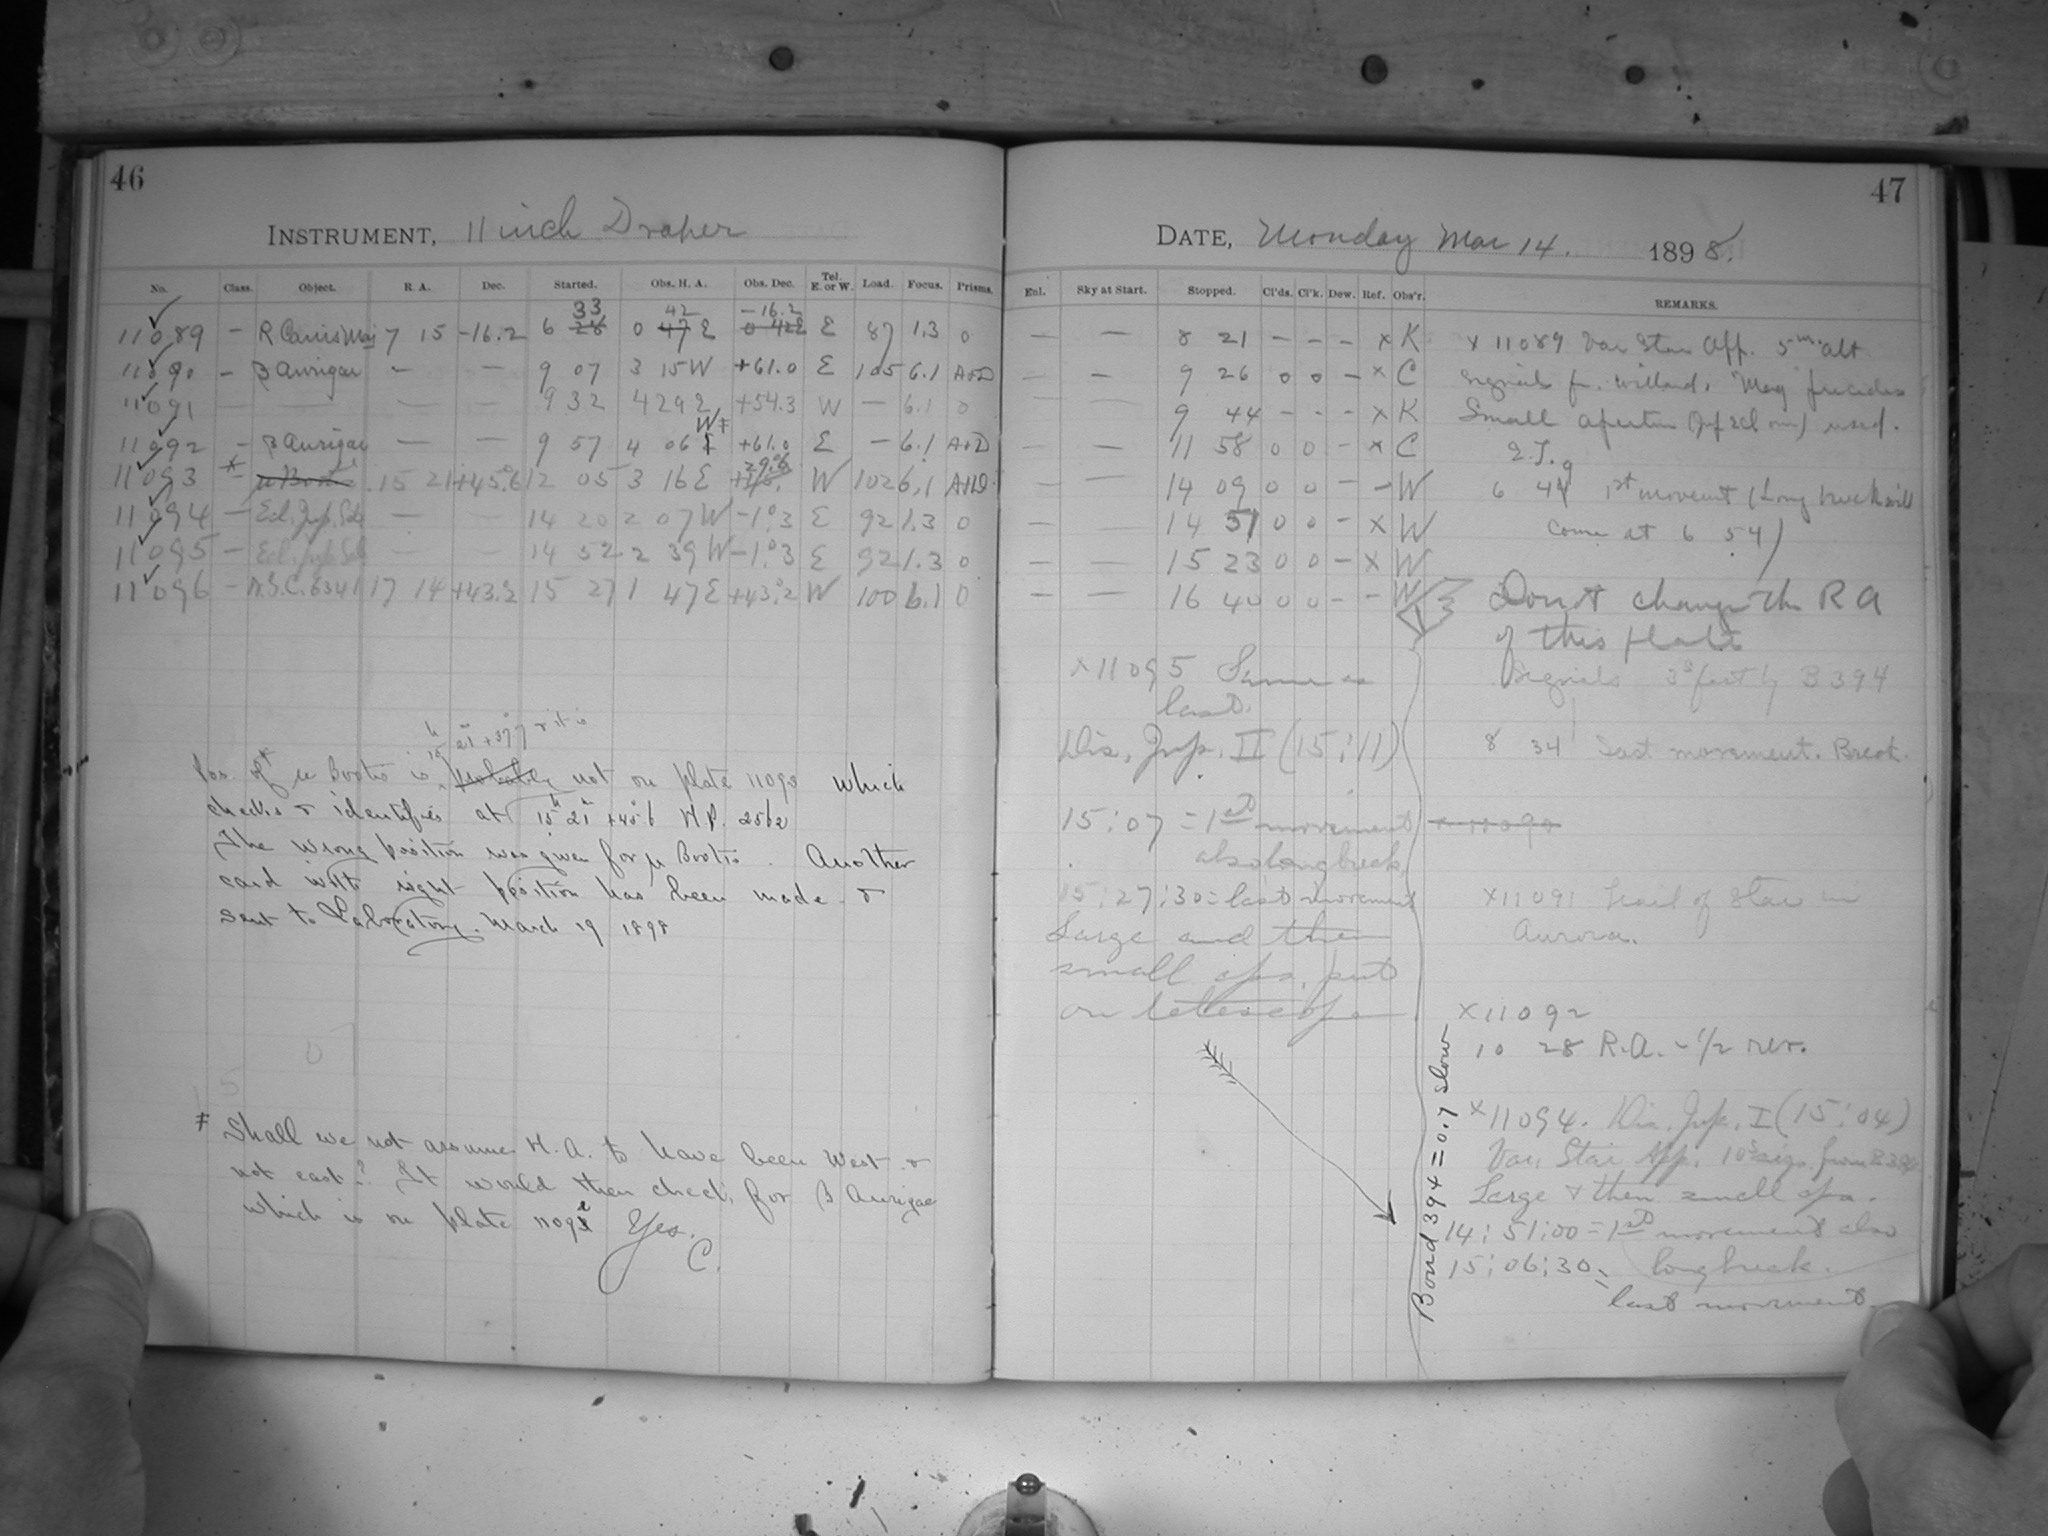 46
INSTRUMENT, 11 inch Draper
No. Class. Object. R. A. Dec. Started. Obs. H. A. Obs. Dec. Tel. E. or W. Load. Focus. Prisms.
33 42 -16.2
11089 - R Canis Maj 7 15 -16.2 6 28 0 47 E E 87 1.3 0
11090 - β Aurigae - - 9 07 3 15 W +61.0 E 105 6.1 A+D
11091 - - - - 9 32 4 29 E +54.3 W - 6.1 0
W ‡
11092 - β Aurigae - - 9 57 4 06 E +61.0 E - 6.1 A+D
11093 * - μ Bootis 15 21 +45.6 12 05 3 16 E W 102 6.1 A+D
11094 - Ecl. Jup. Sat. - - 14 20 2 07 W -1°.3 E 92 1.3 0
11095 - Ecl. Jup. Sat. - - 14 52 2 39 W -1°.3 E 92 1.3 0
11096 - N.G.C. 6341 17 14 +43.2 15 27 1 47 E +43.2 W 100 6.1 0
15h 21m +37°.7 & it is
Pos. of* μ Bootis is probably not on plate 11093 which
checks & identifies at 15h 21m +45°.6 H.P. 2562
The wrong position was given for μ Bootis. Another
card with right position has been made &
sent to Laboratory. March 19 1898
‡ Shall we not assume H.A. to have been West &
not east? It would then check for β Aurigae
which is on plate 11092 Yes.
C.
47
DATE, Monday Mar 14. 1898.
Enl. Sky at Start. Stopped. Cl'ds. Cl'k. Dew. Ref. Obs'r. REMARKS.
- - 8 21 - - - x K x 11089 Var Star App. 5m alt
- - 9 26 0 0 - x C signals fr. Willard,
- - 9 44 - - - x K Small aperture used.
- - 11 58 0 0 - x C
- - 14 09 0 0 - - W 6 49 1st movement (Long break will
- - 14 51 0 0 - x W come at 6 54)
- - 15 23 0 0 - x W
- - 16 40 0 0 - - W Do not change the R A
of this plate
Signals 3s fast by B 394
8 34 Last movement. Break.
x 11090
x11091 Trail of Star in
Aurora.
x11092
10 28 R.A. - 1/2 rev.
x11094. Dis. Jup. I (15:04)
Var. Star App. 10s sigs. from B 394
Large & then small apa.
14:51:00 = 1st movement also
long break.
15:06:30 =
last movement.
x11095 Same as
last.
Dis. Jup. II (15:11)
15:07 = 1st movement
also long break
15:27:30 = last movement
Large and then
small apa. put
on telescope
Bond 394 = 0.7 slow